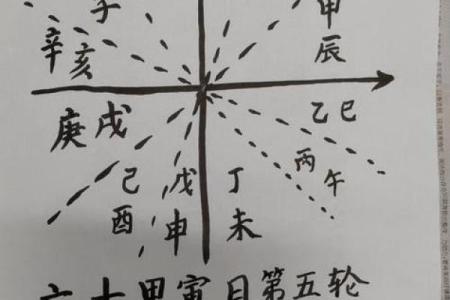 子
甲辰
辛亥
乙巳
庚戌
丙午
己酉
戊申
丁未
甲寅 第五轮